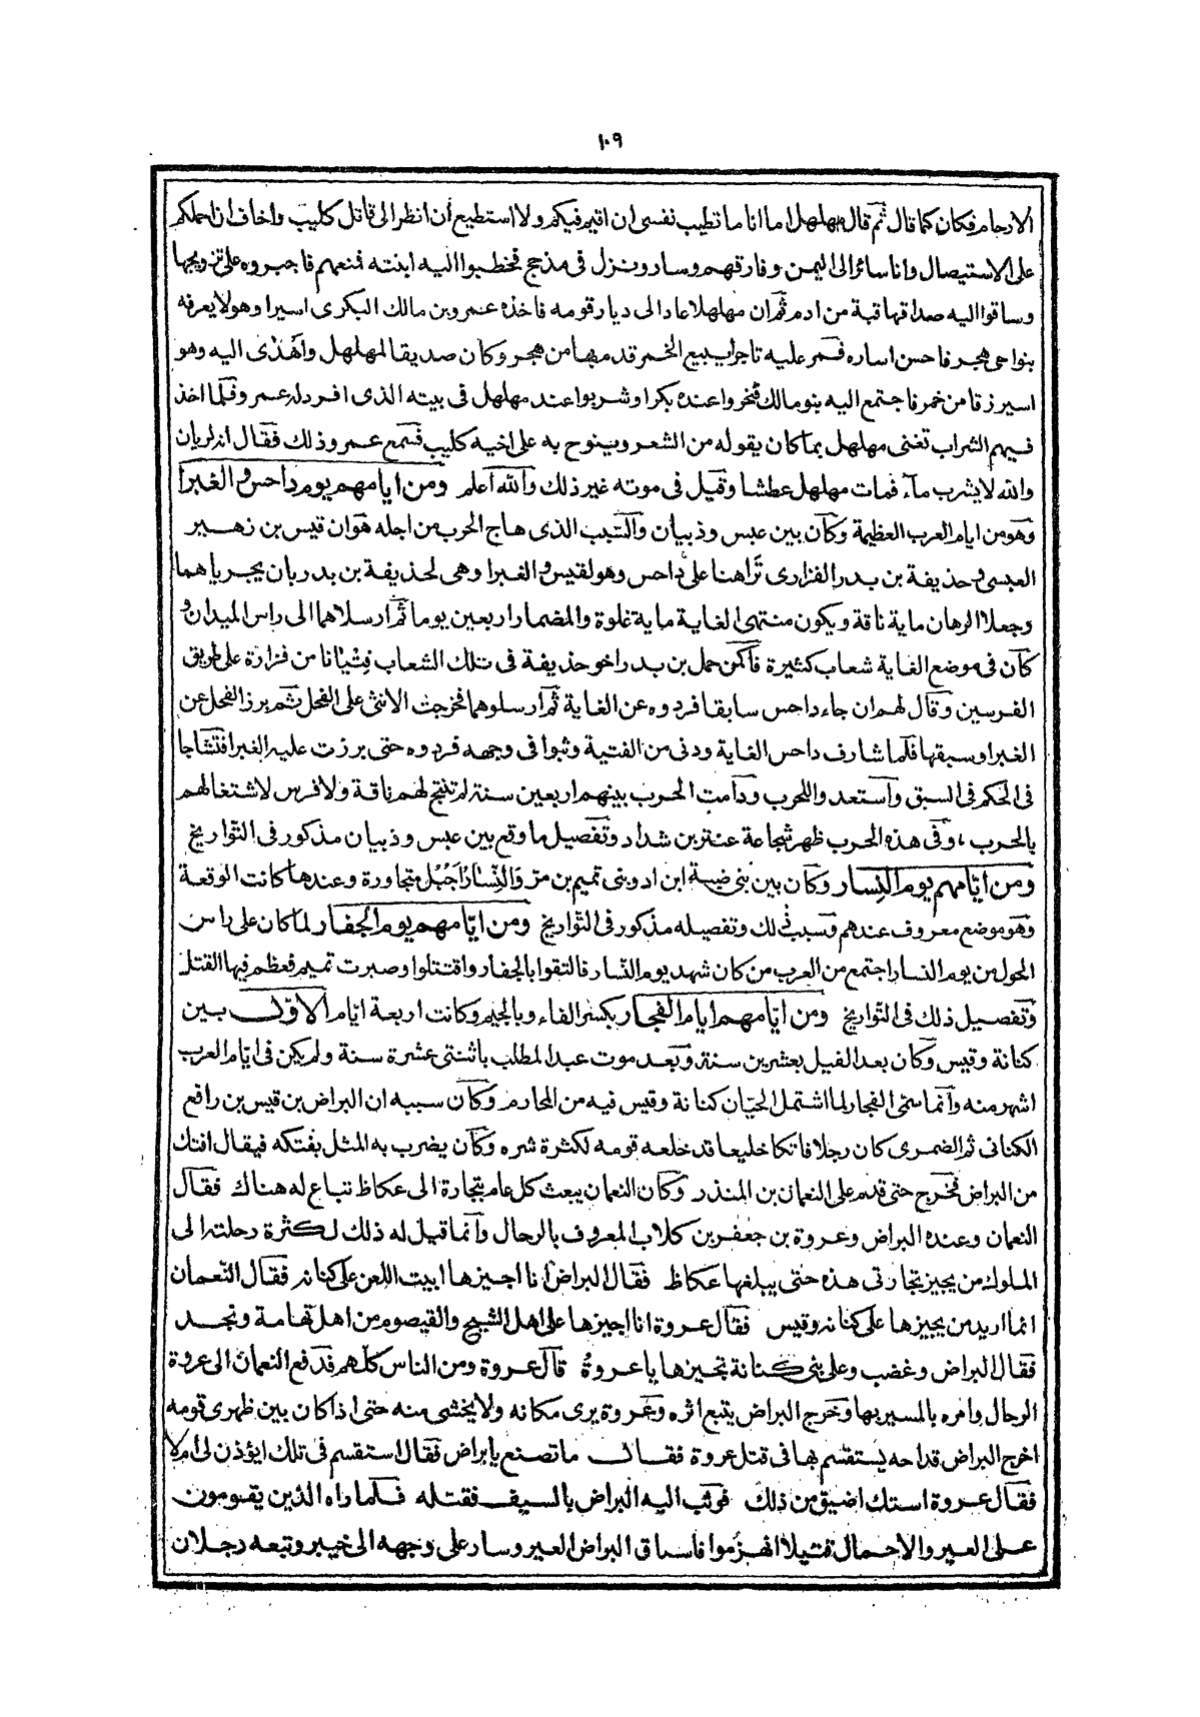 ١٠٩
الارحام فكان كما قال ثم قال مهلهل اما انا ما تطيب نفسى ان اقيم فيكم ولا استطيع أن انظر الى قاتل كليب واخاف ان احملكم
على الاستيصال وانا سائر الى اليمن وفارقهم وسار ونزل فى مذحج فخطبوا اليه ابنته فمنعهم فاجبروه على تزويجها
وساقوا اليه صداقها قبة من ادم ثم ان مهلهلا عاد الى ديار قومه فاخذه عمرو بن مالك البكرى اسيرا وهو لا يعرفه
بنواحى هجر فاحسن اساره فمر عليه تاجر يبيع الخمر قدم بها من هجر وكان صديقا لمهلهل واهدى اليه وهو
اسير زقا من خمر فاجتمع اليه بنو مالك فنحروا عنده بكرا وشربوا عند مهلهل فى بيته الذى افرد له عمرو فلما اخذ
فيهم الشراب تغنى مهلهل بما كان يقوله من الشعر وينوح به على اخيه كليب فسمع عمرو ذلك فقال انه لريان
والله لا يشرب مآء فمات مهلهل عطشا وقيل فى موته غير ذلك والله اعلم ومن ايامهم يوم داحس والغبرا
وهو من ايام العرب العظيمة وكان بين عبس وذبيان والسبب الذى هاج الحرب من اجله هو ان قيس بن زهير
العبسى وحذيفة بن بدر الفزارى تراهنا على داحس وهو لقيس والغبرا وهى لحذيفة بن بدر بان يجرياهما
وجعلا الرهان ماية ناقة ويكون منتهى الغاية ماية غلوة والمضمار اربعين يوما ثم ارسلاهما الى راس الميدان و
كان فى موضع الغاية شعاب كثيرة فاكمن حمل بن بدر اخو حذيفة فى تلك الشعاب فتيانا من فزارة على طريق
الفرسين وقال لهم ان جاء داحس سابقا فردوه عن الغاية ثم ارسلوهما فخرجت الانثى على الفحل ثم برز الفحل عن
الغبرا وسبقها فلما شارف داحس الغاية ودنى من الفتية وثبوا فى وجهه فردوه حتى برزت عليه الغبرا فتشاجا
فى الحكم فى السبق واستعدوا للحرب ودامت الحرب بينهم اربعين سنة لم تنتج لهم ناقة ولا فرس لاشتغالهم
بالحرب ، وفى هذه الحرب ظهر شجاعة عنتر بن شداد وتفصيل ما وقع بين عبس وذبيان مذكور فى التواريخ
ومن ايامهم يوم النسار وكان بين بنى ضبية ابن اد وبنى تميم بن مرّ والنسار اجبل متجاورة وعندها كانت الوقعة
وهو موضع معروف عندهم وسبب ذلك وتفصيله مذكور فى التواريخ ومن ايامهم يوم الجفار لما كان على راس
الحول من يوم النسار اجتمع من العرب من كان شهد يوم النسار فالتقوا بالجفار واقتتلوا وصبرت تميم فعظم فيها القتل
وتفصيل ذلك فى التواريخ ومن ايامهم ايام الفجار بكسر الفاء وبالجيم وكانت اربعة ايام الاول بين
كنانة وقيس وكان بعد الفيل بعشرين سنة وبعد موت عبد المطلب باثنتى عشرة سنة ولم يكن فى ايام العرب
اشهر منه وانما سمى الفجار لما اشتمل الحيان كنانة وقيس فيه من المحارم وكان سببه ان البراض بن قيس بن رافع
الكنانى ثم الضمرى كان رجلا فاتكا خليعا قد خلعه قومه لكثرة شره وكان يضرب به المثل بفتكه فيقال افتك
من البراض فخرج حتى قدم على النعمان بن المنذر وكان النعمان يبعث كل عام بتجارة الى عكاظ تباع له هناك فقال
النعمان وعنده البراض وعروة بن جعفر بن كلاب المعروف بالرحال وانما قيل له ذلك لكثرة رحلته الى
الملوك من يجيز تجارتى هذه حتى يبلغها عكاظ فقال البراض انا اجيزها ابيت اللعن على كنانه فقال النعمان
انما اريد من يجيزها على كنانه وقيس فقال عروة انا اجيزها على اهل الشيح والقيصوم من اهل تهامة ونجد
فقال البراض وغضب وعلى بنى كنانة تجيزها يا عروة قال عروة ومن الناس كلهم فدفع النعمان الى عروة
الرحال وامره بالمسير بها وخرج البراض يتبع اثره وعروة يرى مكانه ولا يخشى منه حتى اذا كان بين ظهرى قومه
اخرج البراض قداحه يستقسم بها فى قتل عروة فقال ما تصنع يا براض فقال استقسم فى تلك ايؤذن لى ام لا
فقال عروة استك اضيق من ذلك فوثب اليه البراض بالسيف فقتله فلما راه الذين يقومون
على العير والاحمال قتيلا انهزموا فاستاق البراض العير وسار على وجهه الى خيبر وتبعه رجلان